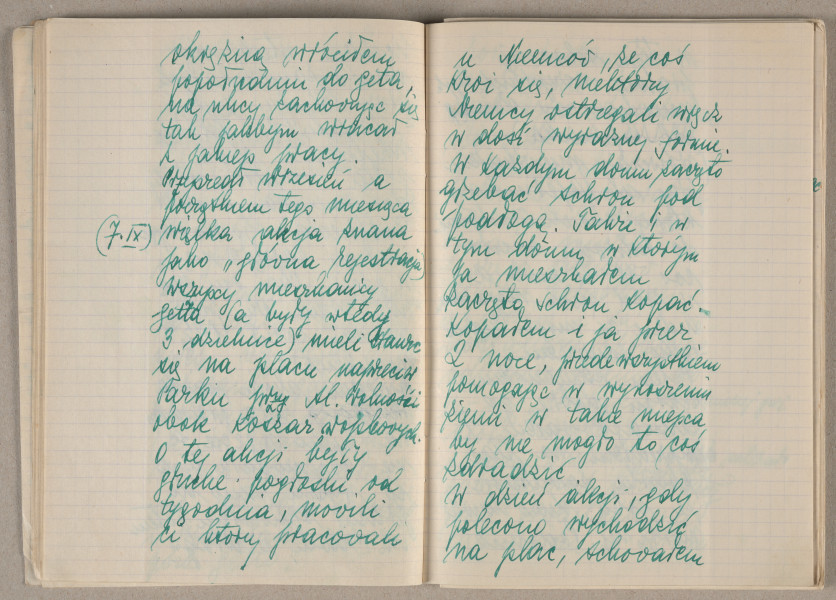 okrężną wróciłem
popołudniu do geta,
na ulicy zachowując się
tak jakbym wracał
z jakiejś pracy.
Nadszedł wrzesień a
początkiem tego miesiąca
(7.IX) wielka akcja znana
jako „główna rejestracja"
wszyscy mieszkańcy
getta (a były wtedy
3 dzielnice) mieli stawić
się na placu naprzeciw
Parku przy Al. Wolności
obok koszar wojskowych.
O tej akcji były
głuche pogłoski od
tygodnia, mówili
ci którzy pracowali
u Niemców, że coś
kroi się, niektórzy
Niemcy ostrzegali wręcz
w dość wyraźnej formie.
W każdym domu zaczęto
grzebać schron pod
podłogą. Także i w
tym domu w którym
ja mieszkałem
zaczęto schron kopać.
Kopałem i ja przez
2 noce, przedewszystkiem
pomagając w wynoszeniu
ziemi w takie miejsca
by nie mogło to coś
zdradzić
w dzień akcji, gdy
polecono wychodzić
na plac, schowałem